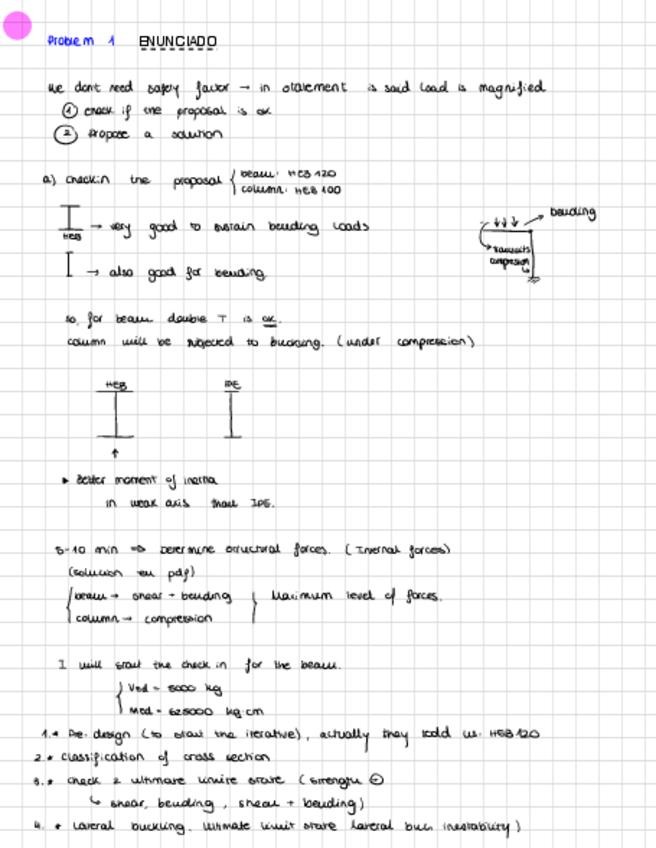 Problem 1 ENUNCIADO
We don't need safety factor → in statement is said load is magnified
① check if the proposal is ok
② Propose a solution
a) checkin the proposal { beam: HEB 120
column: HEB 100
HEB → very good to sustain bending loads
bending
transmits
compression
→ also good for bending
so, for beam double T is ok.
column will be subjected to buckling. (under compression)
HEB IPE
▸ Better moment of inertia
in weak axis than IPE.
5-10 min ⇒ Determine structural forces. (Internal forces)
(solución en pdf)
{ beam → shear + bending } Maximum level of forces.
column → compression
I will start the check in for the beam.
{ Ved = 5000 kg
Med = 625000 kg·cm
1.* Pre-design (to start the iterative), actually they told us: HEB 120
2.* classification of cross section
3.* check 2 ultimate limite state (strength
↳ shear, bending, shear + bending)
4. * Lateral buckling. ultimate limit state lateral instability)